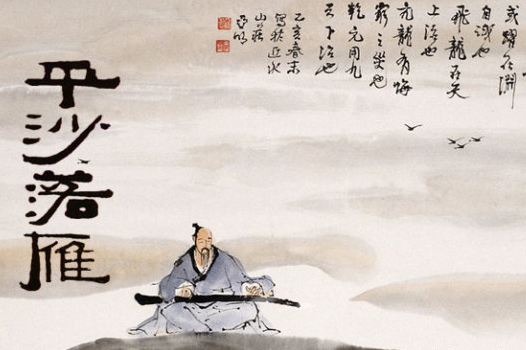 或躍在淵
自試也
飛龍在天
上治也
亢龍有悔
窮之災也
乾元用九
天下治也
乙亥春末
寫於近水
山莊
亞明
平沙落雁